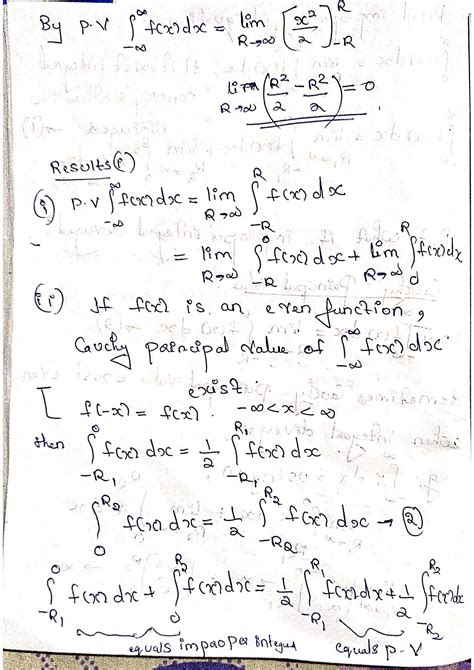 By P.V ∫_{-∞}^{∞} f(x) dx = lim_{R→∞} [x²/2]_{-R}^{R}
lim_{R→∞} (R²/2 - R²/2) = 0
Results(i)
(i) P.V ∫_{-∞}^{∞} f(x) dx = lim_{R→∞} ∫_{-R}^{R} f(x) dx
= lim_{R→∞} ∫_{-R}^{0} f(x) dx + lim_{R→∞} ∫_{0}^{R} f(x) dx
(ii) If f(x) is an even function,
Cauchy principal value of ∫_{-∞}^{∞} f(x) dx
exist.
[ f(-x) = f(x) -∞<x<∞
then ∫_{-R₁}^{0} f(x) dx = 1/2 ∫_{-R₁}^{R₁} f(x) dx
∫_{0}^{R₂} f(x) dx = 1/2 ∫_{-R₂}^{R₂} f(x) dx → (2)
∫_{-R₁}^{0} f(x) dx + ∫_{0}^{R₂} f(x) dx = 1/2 ∫_{-R₁}^{R₁} f(x) dx + 1/2 ∫_{-R₂}^{R₂} f(x) dx
equals improper integral equals P-V